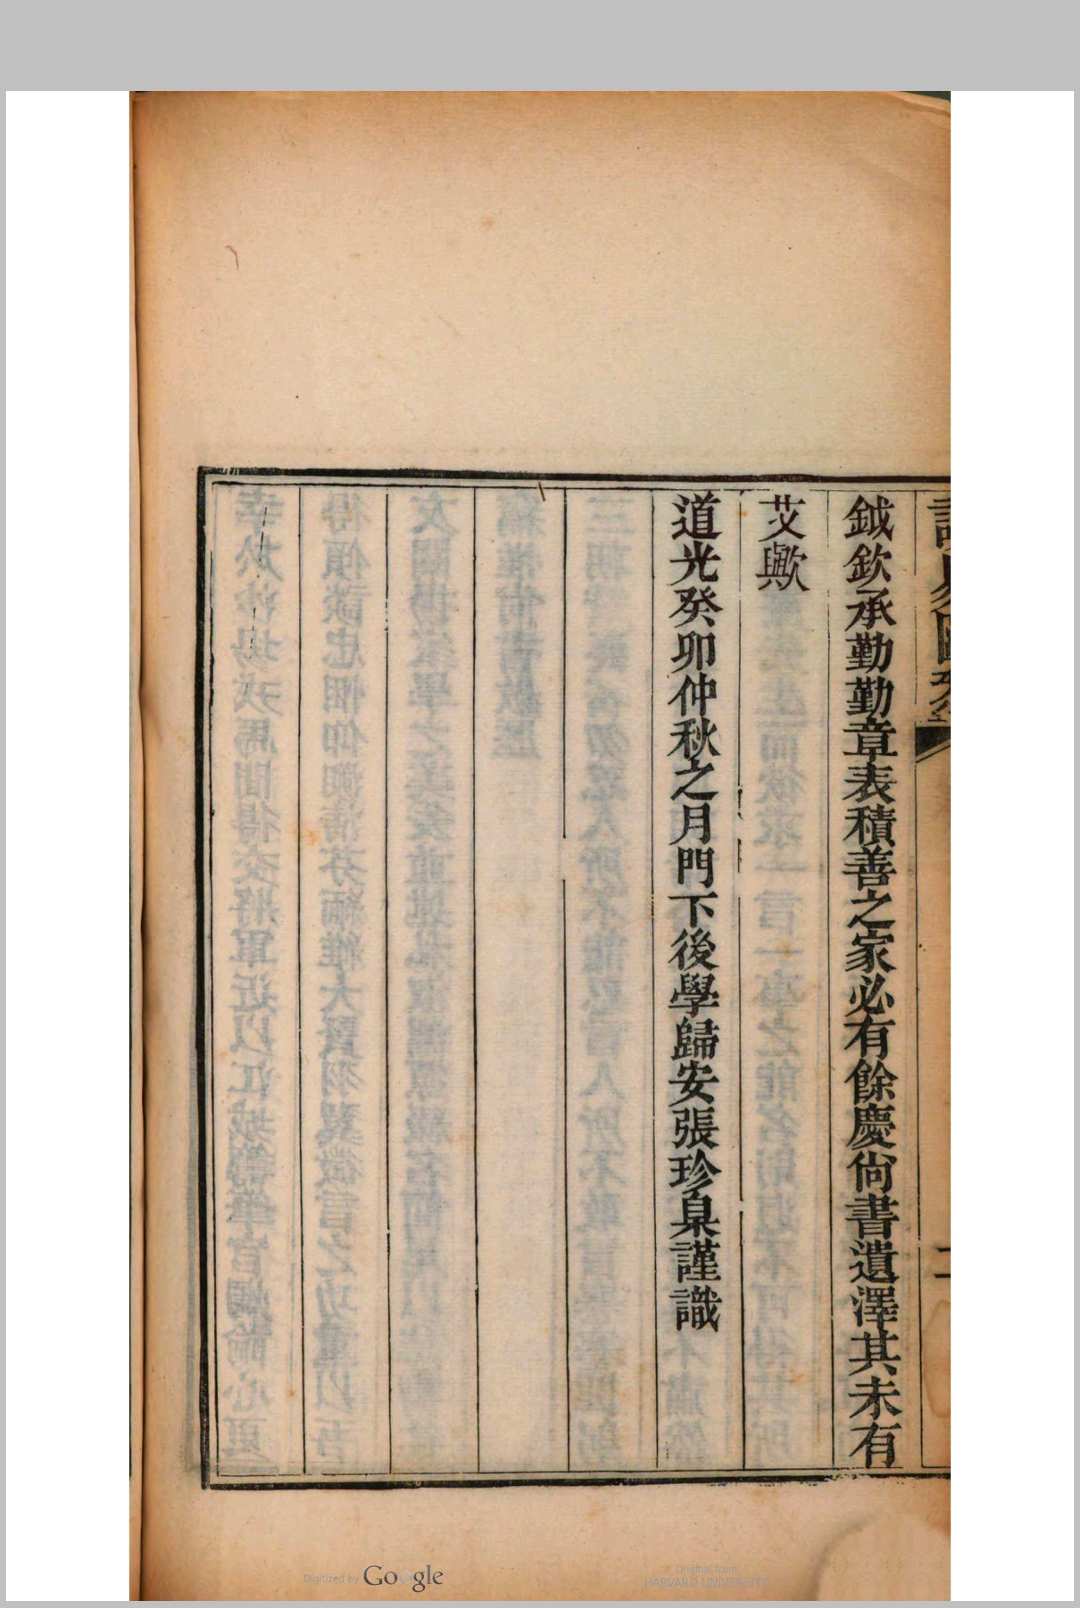 鉞欽承勤勤章表積善之家必有餘慶尙書遺澤其未有
艾歟
道光癸卯仲秋之月門下後學歸安張珍臬謹識
二
Digitized by Google
Original from
HARVARD UNIVERSITY